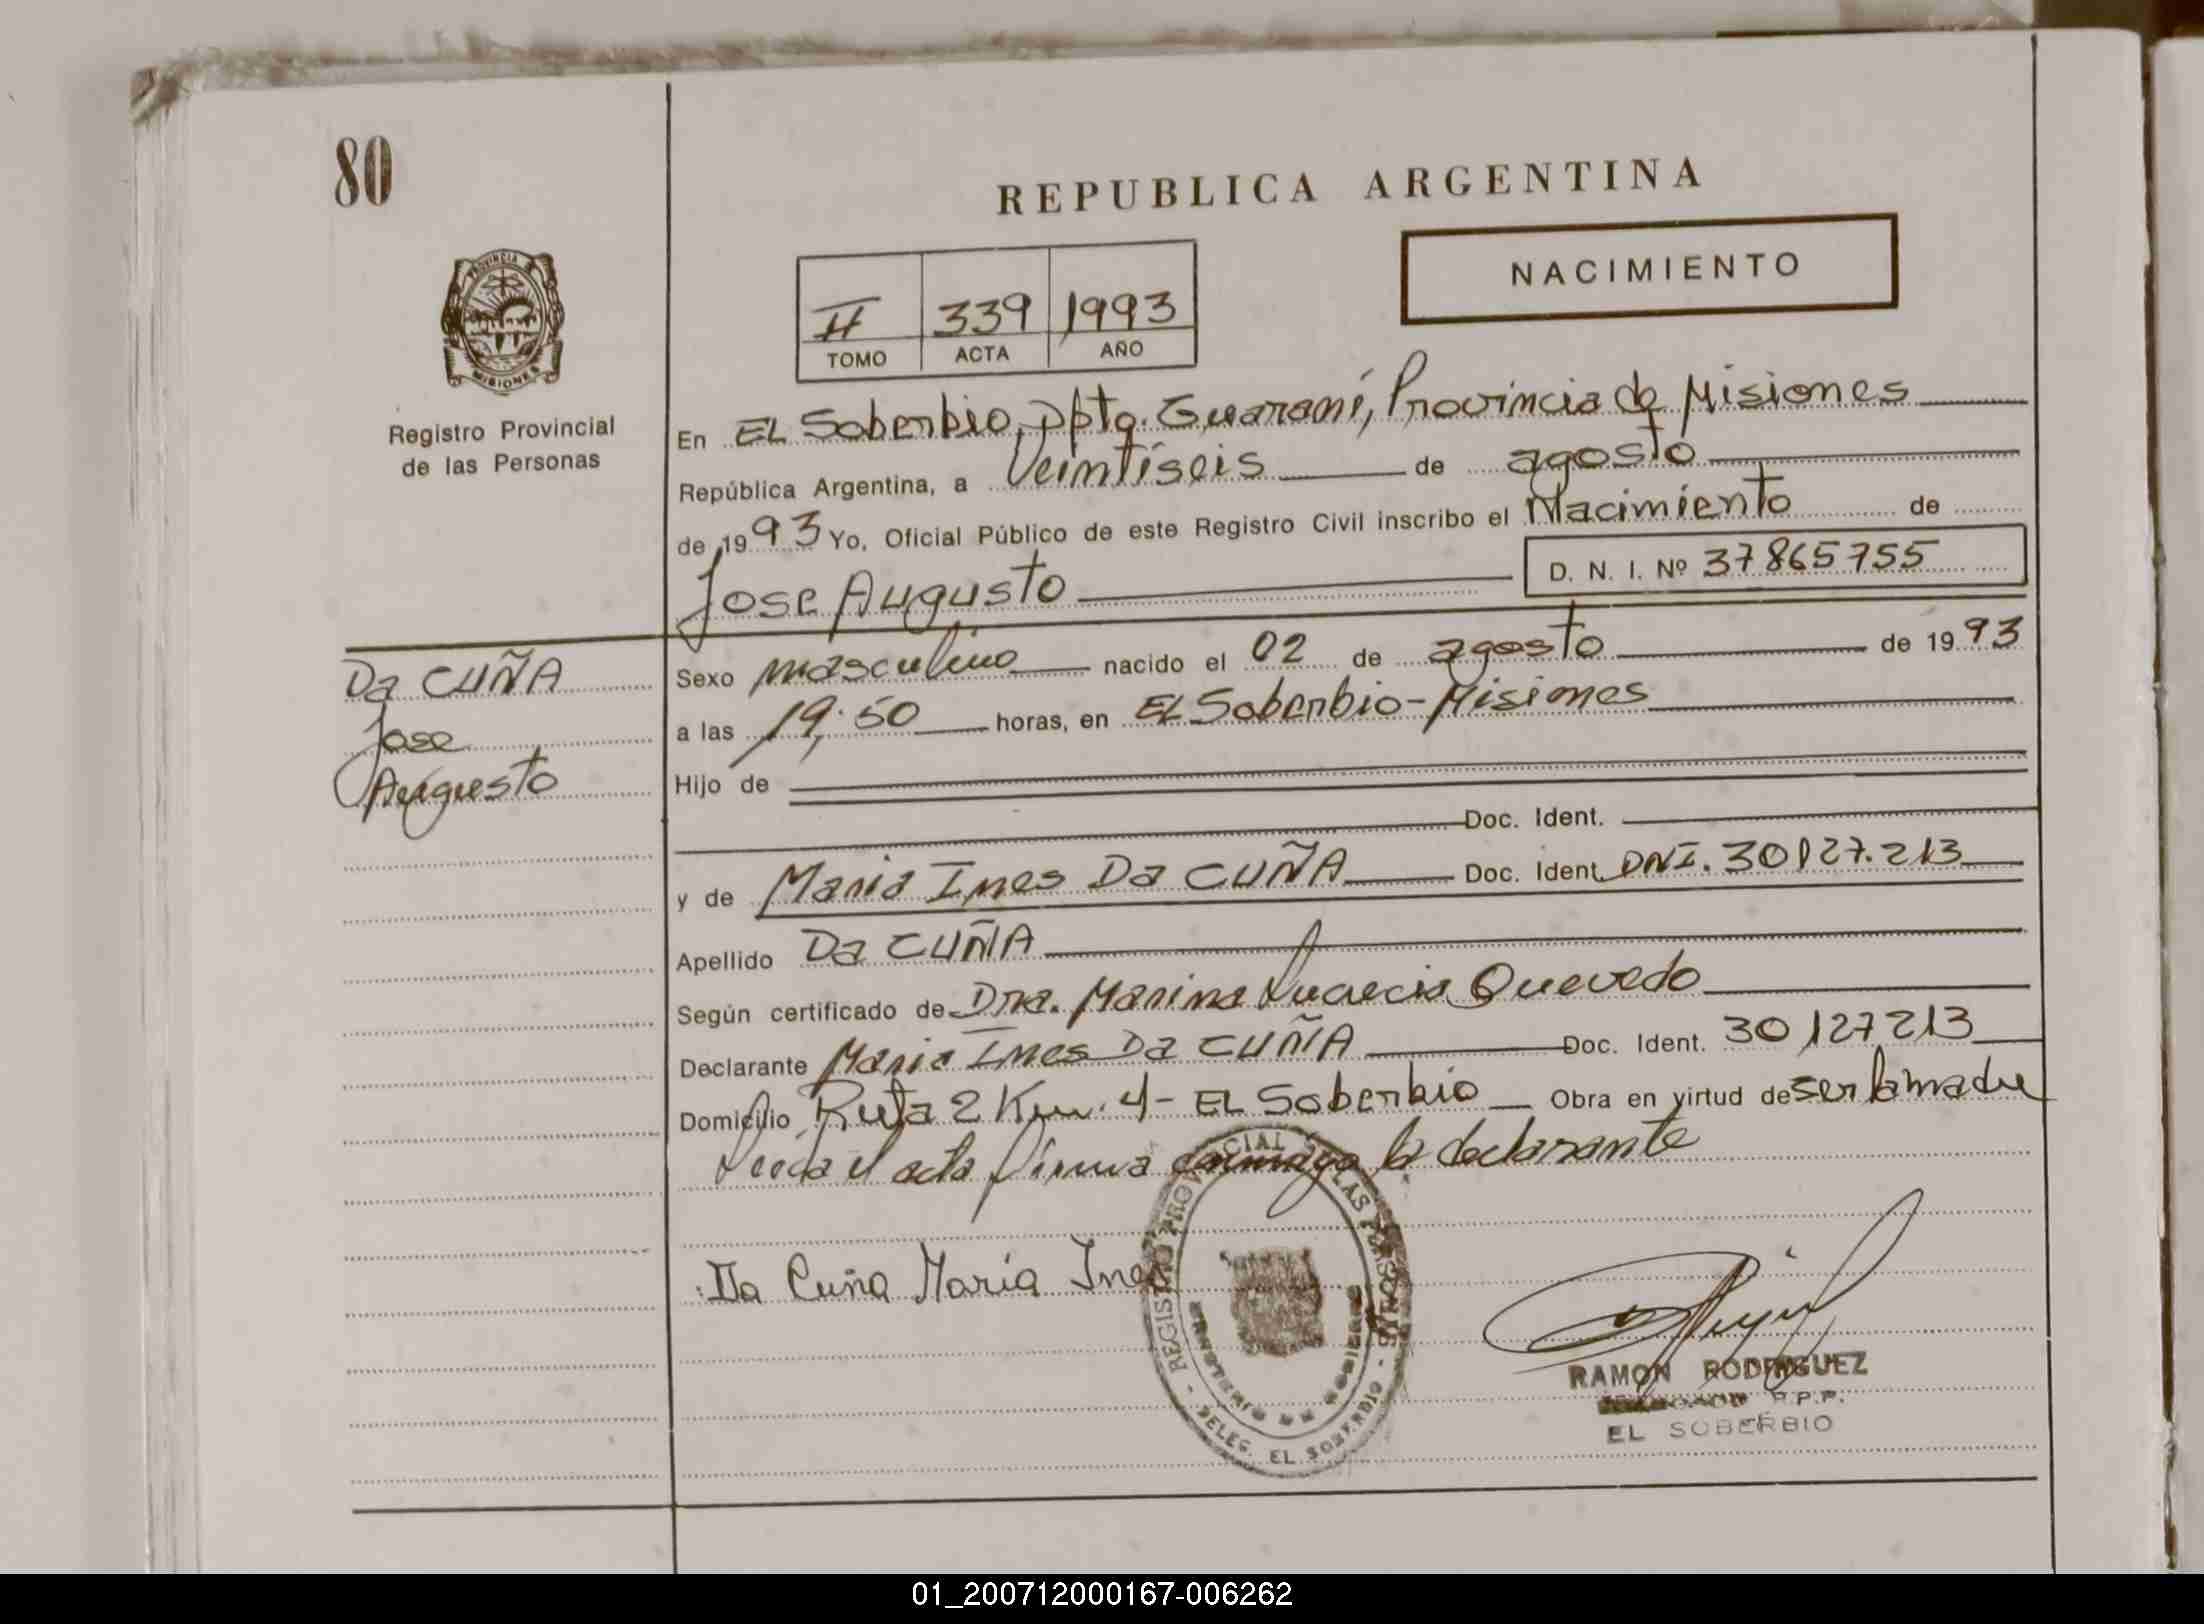 80
REPUBLICA ARGENTINA
NACIMIENTO
PROVINCIA
MISIONES
Registro Provincial
de las Personas
II 339 1993
TOMO ACTA AÑO
En EL Soberbio, Dpto. Guaraní, Provincia de Misiones
República Argentina, a Veintiseis de agosto
de 1993 Yo, Oficial Público de este Registro Civil inscribo el Nacimiento de
Jose Augusto D. N. I. Nº 37865755
DA CUÑA
Jose
Augusto
Sexo masculino nacido el 02 de agosto de 1993
a las 19:50 horas, en EL Soberbio - Misiones
Hijo de
Doc. Ident.
y de Maria Ines Da CUÑA Doc. Ident. DNI. 30127.213
Apellido Da CUÑA
Según certificado de Dra. Marina Lucrecia Quevedo
Declarante Maria Ines Da CUÑA Doc. Ident. 30127213
Domicilio Ruta 2 Km. 4 - EL Soberbio Obra en virtud de ser la madre
Leída el acta firma conmigo la declarante
Da Cuña María Ines
REGISTRO PROVINCIAL DE LAS PERSONAS
MINISTERIO DE GOBIERNO
- DELEG. EL SOBERBIO -
RAMON RODRIGUEZ
R.P.P.
EL SOBERBIO
01_200712000167-006262